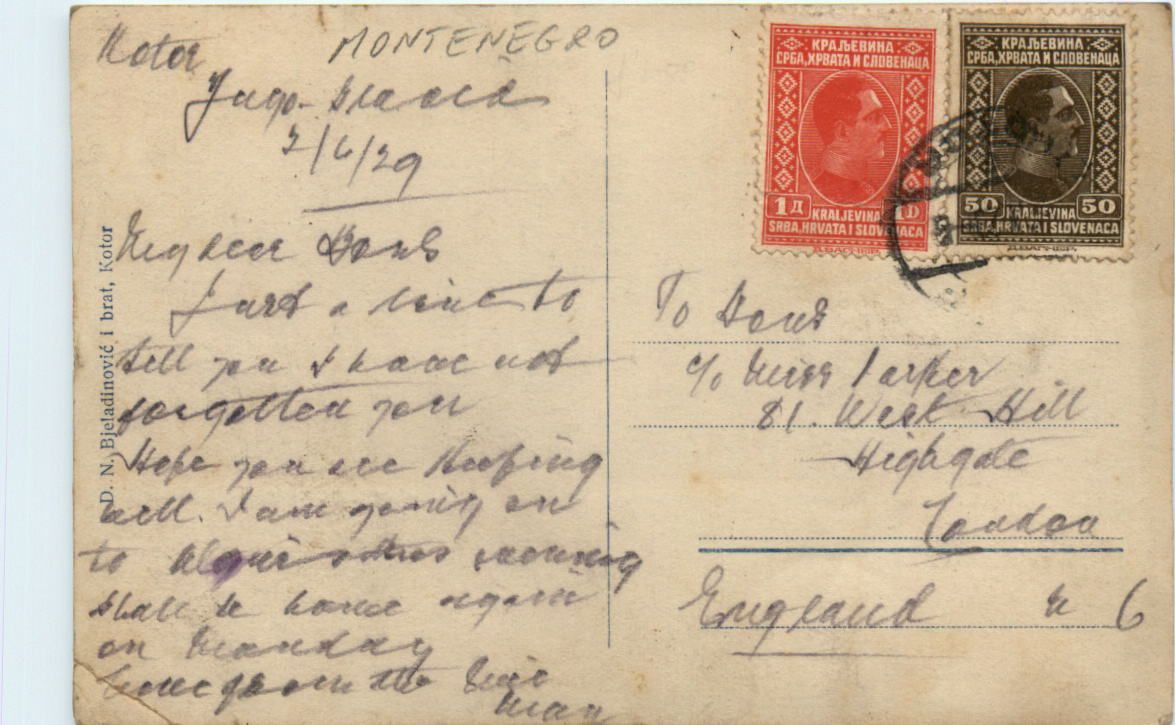 Kotor
MONTENEGRO
Jugo-Slavia
2/4/29
My dear Doris
Just a line to
tell you I have not
forgotten you
Hope you are keeping
well. I am going on
to this evening
shall be home again
on Monday
Love from the
Man
D. N. Bjeladinović i brat, Kotor
КРАЉЕВИНА
СРБА, ХРВАТА И СЛОВЕНАЦА
1 Д 1 D
KRALJEVINA
SRBA, HRVATA I SLOVENACA
КРАЉЕВИНА
СРБА, ХРВАТА И СЛОВЕНАЦА
50 50
KRALJEVINA
SRBA, HRVATA I SLOVENACA
To Doris
c/o Miss Parker
81. West Hill
Highgate
London
England N 6